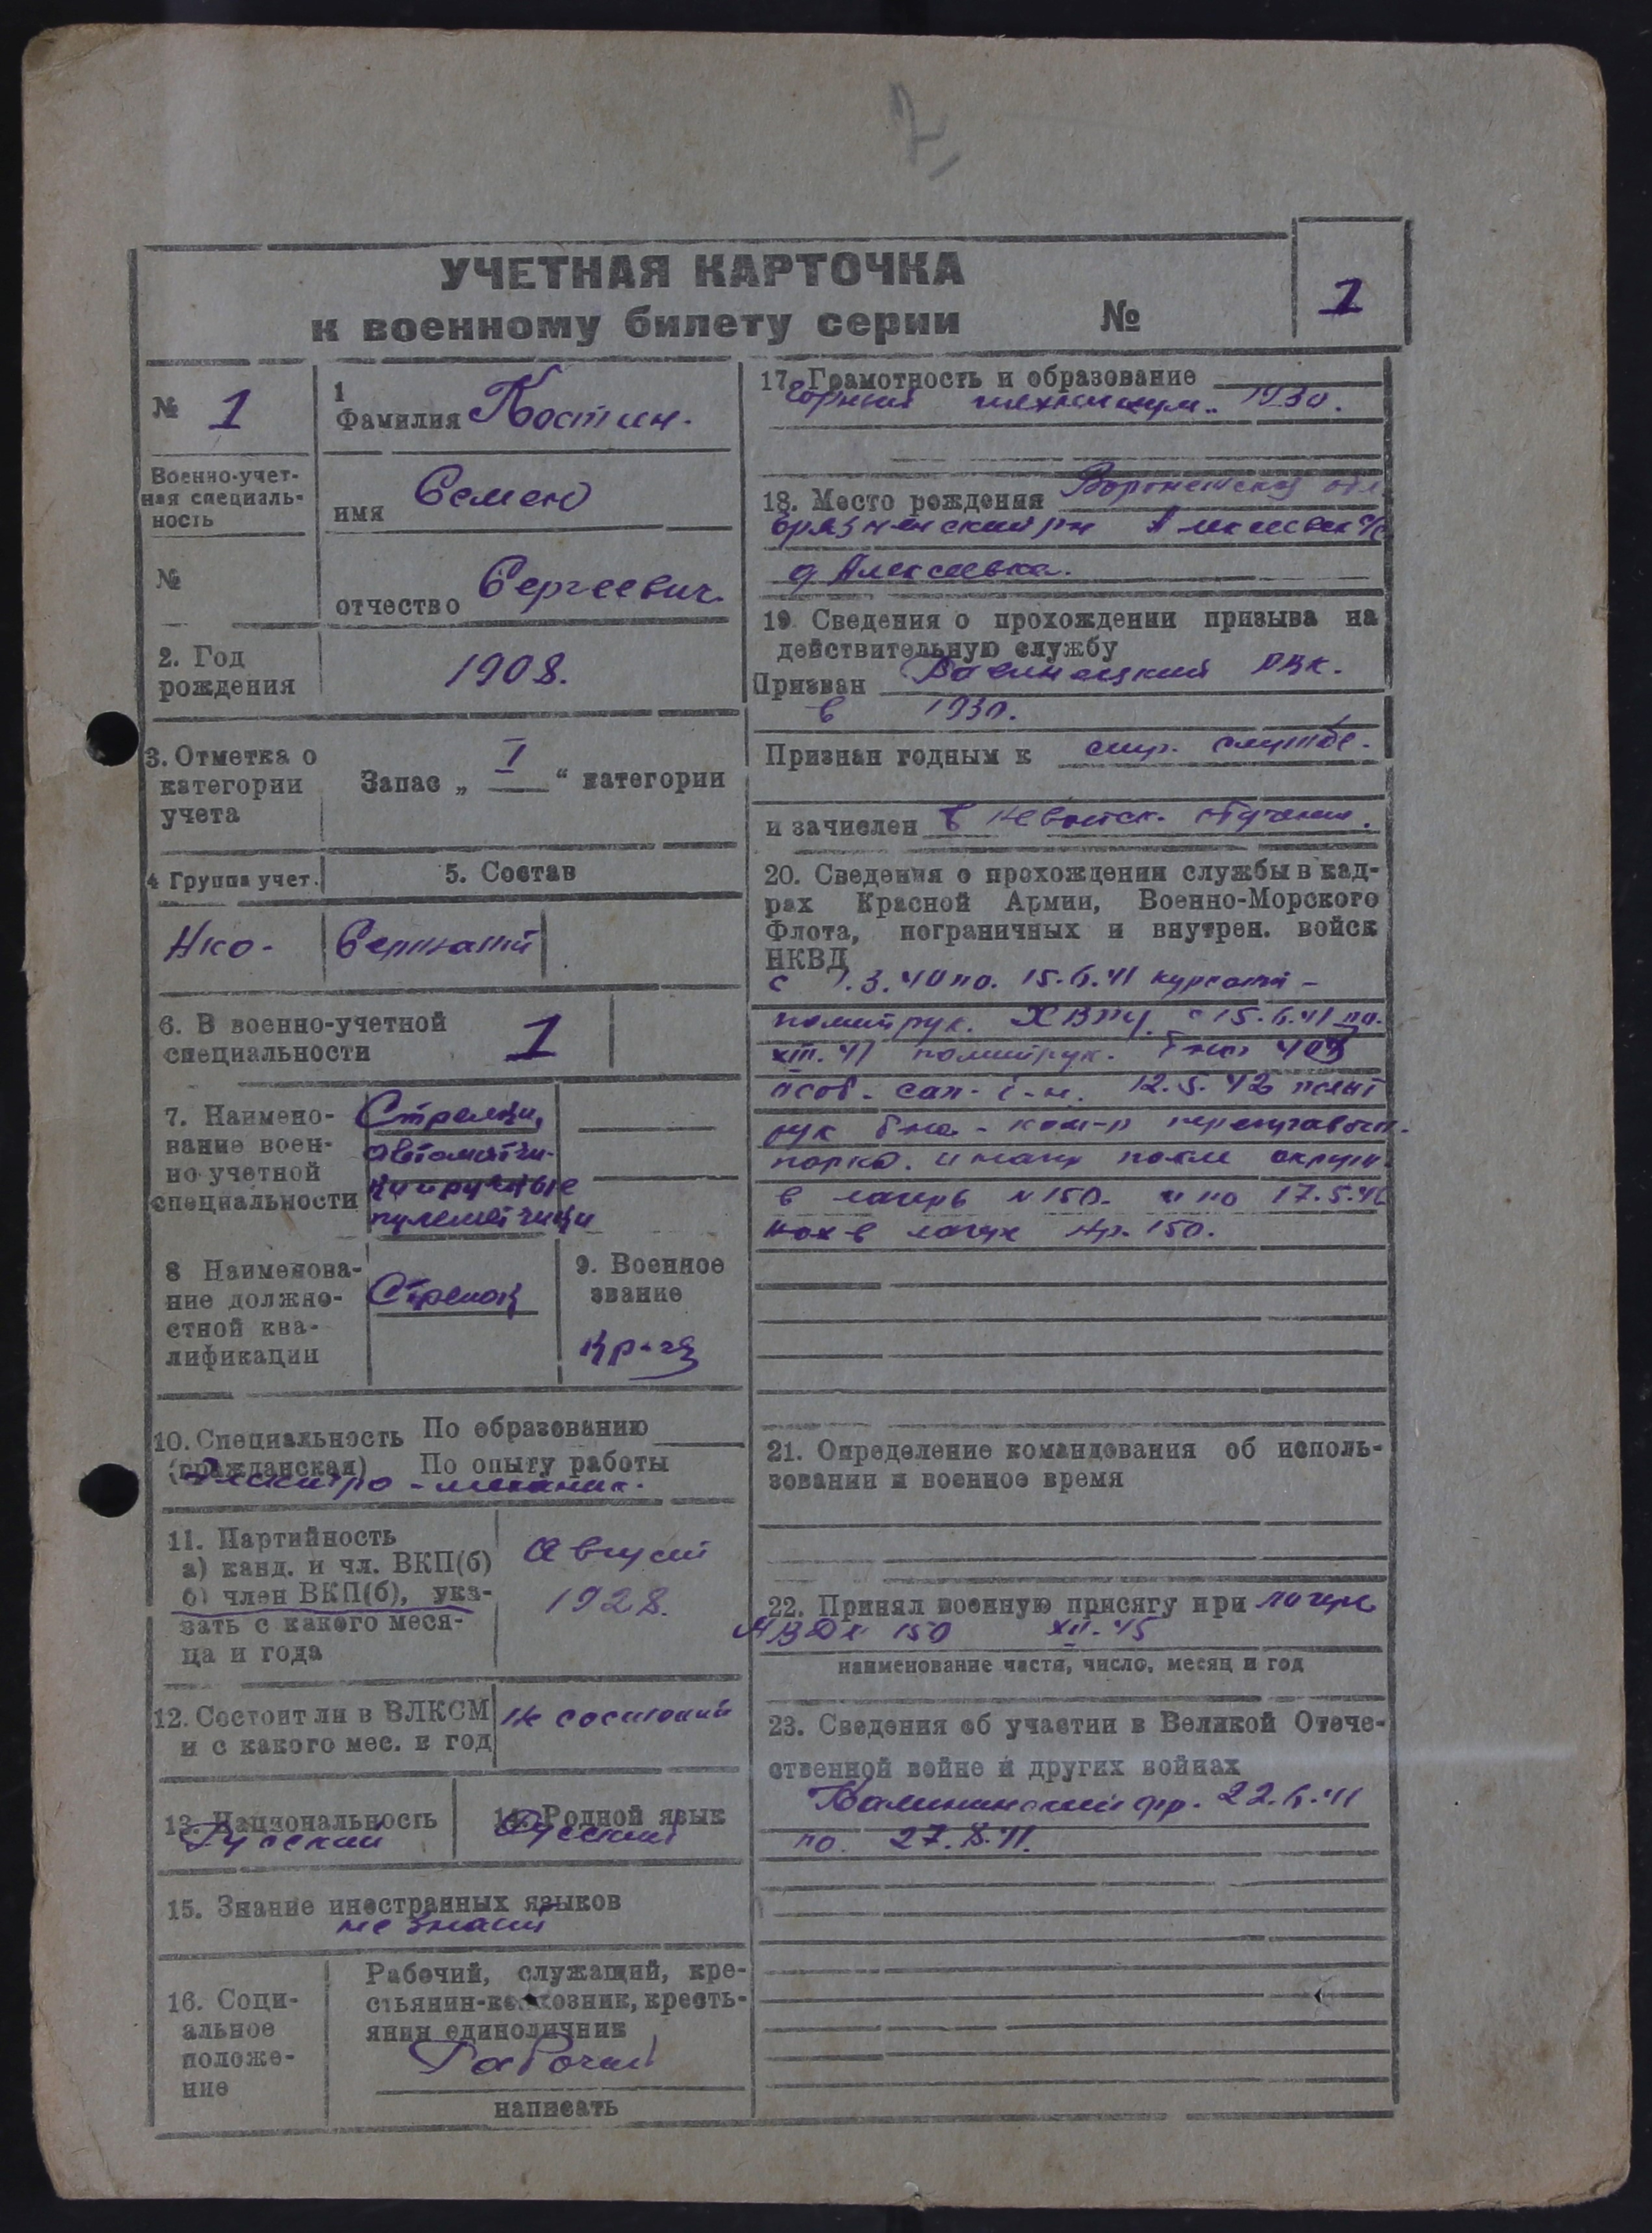 УЧЕТНАЯ КАРТОЧКА
к военному билету серии №
1
№ 1
Военно-учет-
ная специаль-
ность
№
1
Фамилия Костин.
имя Семен
отчество Сергеевич
2. Год
рождения
1908.
3. Отметка о
категории
учета
Запас „ I “ категории
4 Группа учет.
5. Состав
НКО-
Сержант
6. В военно-учетной
специальности
1
7. Наимено-
вание воен-
но учетной
специальности
Стрелки,
автоматчи-
ки и ручные
пулеметчики
8 Наименова-
ние должно-
стной ква-
лификации
Стрелок
9. Военное
звание
Кр-ец
10. Специальность
(гражданская)
По образованию
По опыту работы
Электро-механик.
11. Партийность
а) канд. и чл. ВКП(б)
б) член ВКП(б), ука-
зать с какого меся-
ца и года
Август
1928.
12. Состоит ли в ВЛКСМ
и с какого мес. и год
не состоит
13. Национальность
Русский
14. Родной язык
Русский
15. Знание иностранных языков
не знает
16. Соци-
альное
положе-
ние
Рабочий, служащий, кре-
стьянин-колхозник, кресть-
янин единоличник
Рабочий
написать
17. Грамотность и образование
Горный техникум. 1930.
18. Место рождения Воронежская обл
рн
д Алексеевка.
19 Сведения о прохождении призыва на
действительную службу
Призван РВК.
в 1930.
Признан годным к стр. службе.
и зачислен в невойск. обучение.
20. Сведения о прохождении службы в кад-
рах Красной Армии, Военно-Морского
Флота, пограничных и внутрен. войск
НКВД
с 1.3.40 по. 15.6.41 курсант-
политрук. с 15.6.41 по.
41 политрук.
особ. сап. б-н. 12.5.42 полит
рук б-на - ком-р переправочн.
парка. после окруж.
в лагерь №150. и по 17.5.46
нах в лагере нр. 150.
21. Определение командования об исполь-
зовании в военное время
22. Принял военную присягу при лагере
150 XII-45
наименование части, число, месяц и год
23. Сведения об участии в Великой Отече-
ственной войне и других войнах
Калининский фр. 22.6.41
по.